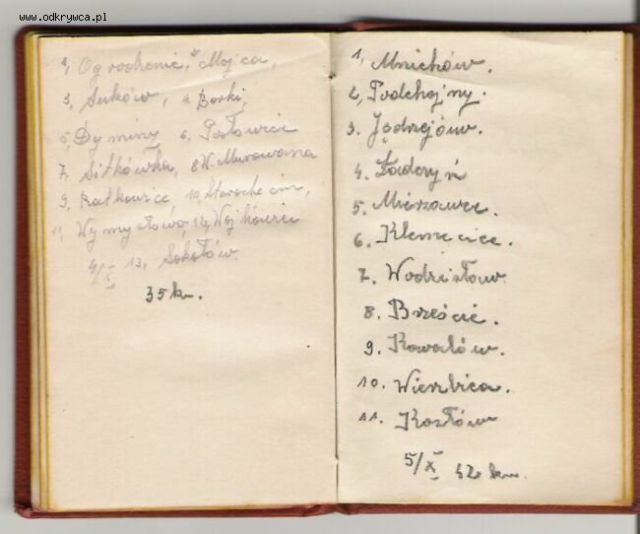 www.odkrywca.pl
1, Ogrodzenie, 2 Mojca,
3, Suków, 4 Borki,
5, Dyminy 6. Posłowice
7. Sitkówka, 8 W. Murowana
9. Radkowice, 10, Starochęciny,
11, Wymysłowa, 12, Wojkowice
4/X 13, Sokołów.
35 km.
1, Mnichów.
2, Podchojny.
3. Jędrzejów.
4. Łączyń
5. Mierzawce.
6. Klemęcice.
7. Wodzisław
8. Brzeście.
9. Kowalów.
10. Wierzbica.
11. Kozłów
5/X 42 km.